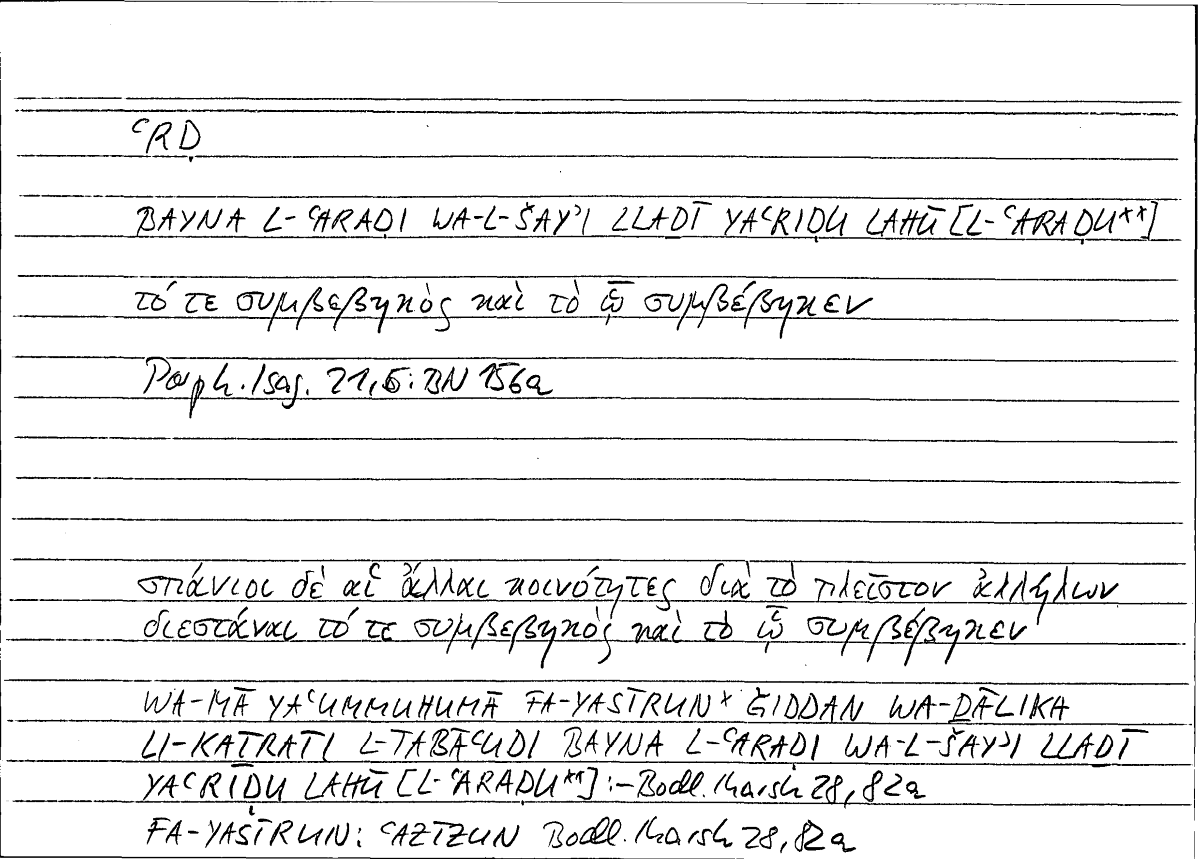 ʿRḌ
BAYNA L-ʿARAḌI WA-L-ŠAYʾI LLAḎĪ YAʿRIḌU LAHŪ [L-ʿARAḌU**]
τό τε συμβεβηκὸς καὶ τὸ ᾧ συμβέβηκεν
Porph. Isag. 21,6: BN 156a
σπάνιοι δὲ αἱ ἄλλαι κοινότητες διὰ τὸ πλεῖστον ἀλλήλων
διεστάναι τό τε συμβεβηκὸς καὶ τὸ ᾧ συμβέβηκεν
WA-MĀ YAʿUMMUHUMĀ FA-YASĪRUN* ǦIDDAN WA-ḎĀLIKA
LI-KAṮRATI L-TABĀʿUDI BAYNA L-ʿARAḌI WA-L-ŠAYʾI LLAḎĪ
YAʿRIḌU LAHŪ [L-ʿARAḌU**] :– Bodl. Marsh 28, 82a
FA-YASĪRUN: ʿAZĪZUN Bodl. Marsh 28, 82a